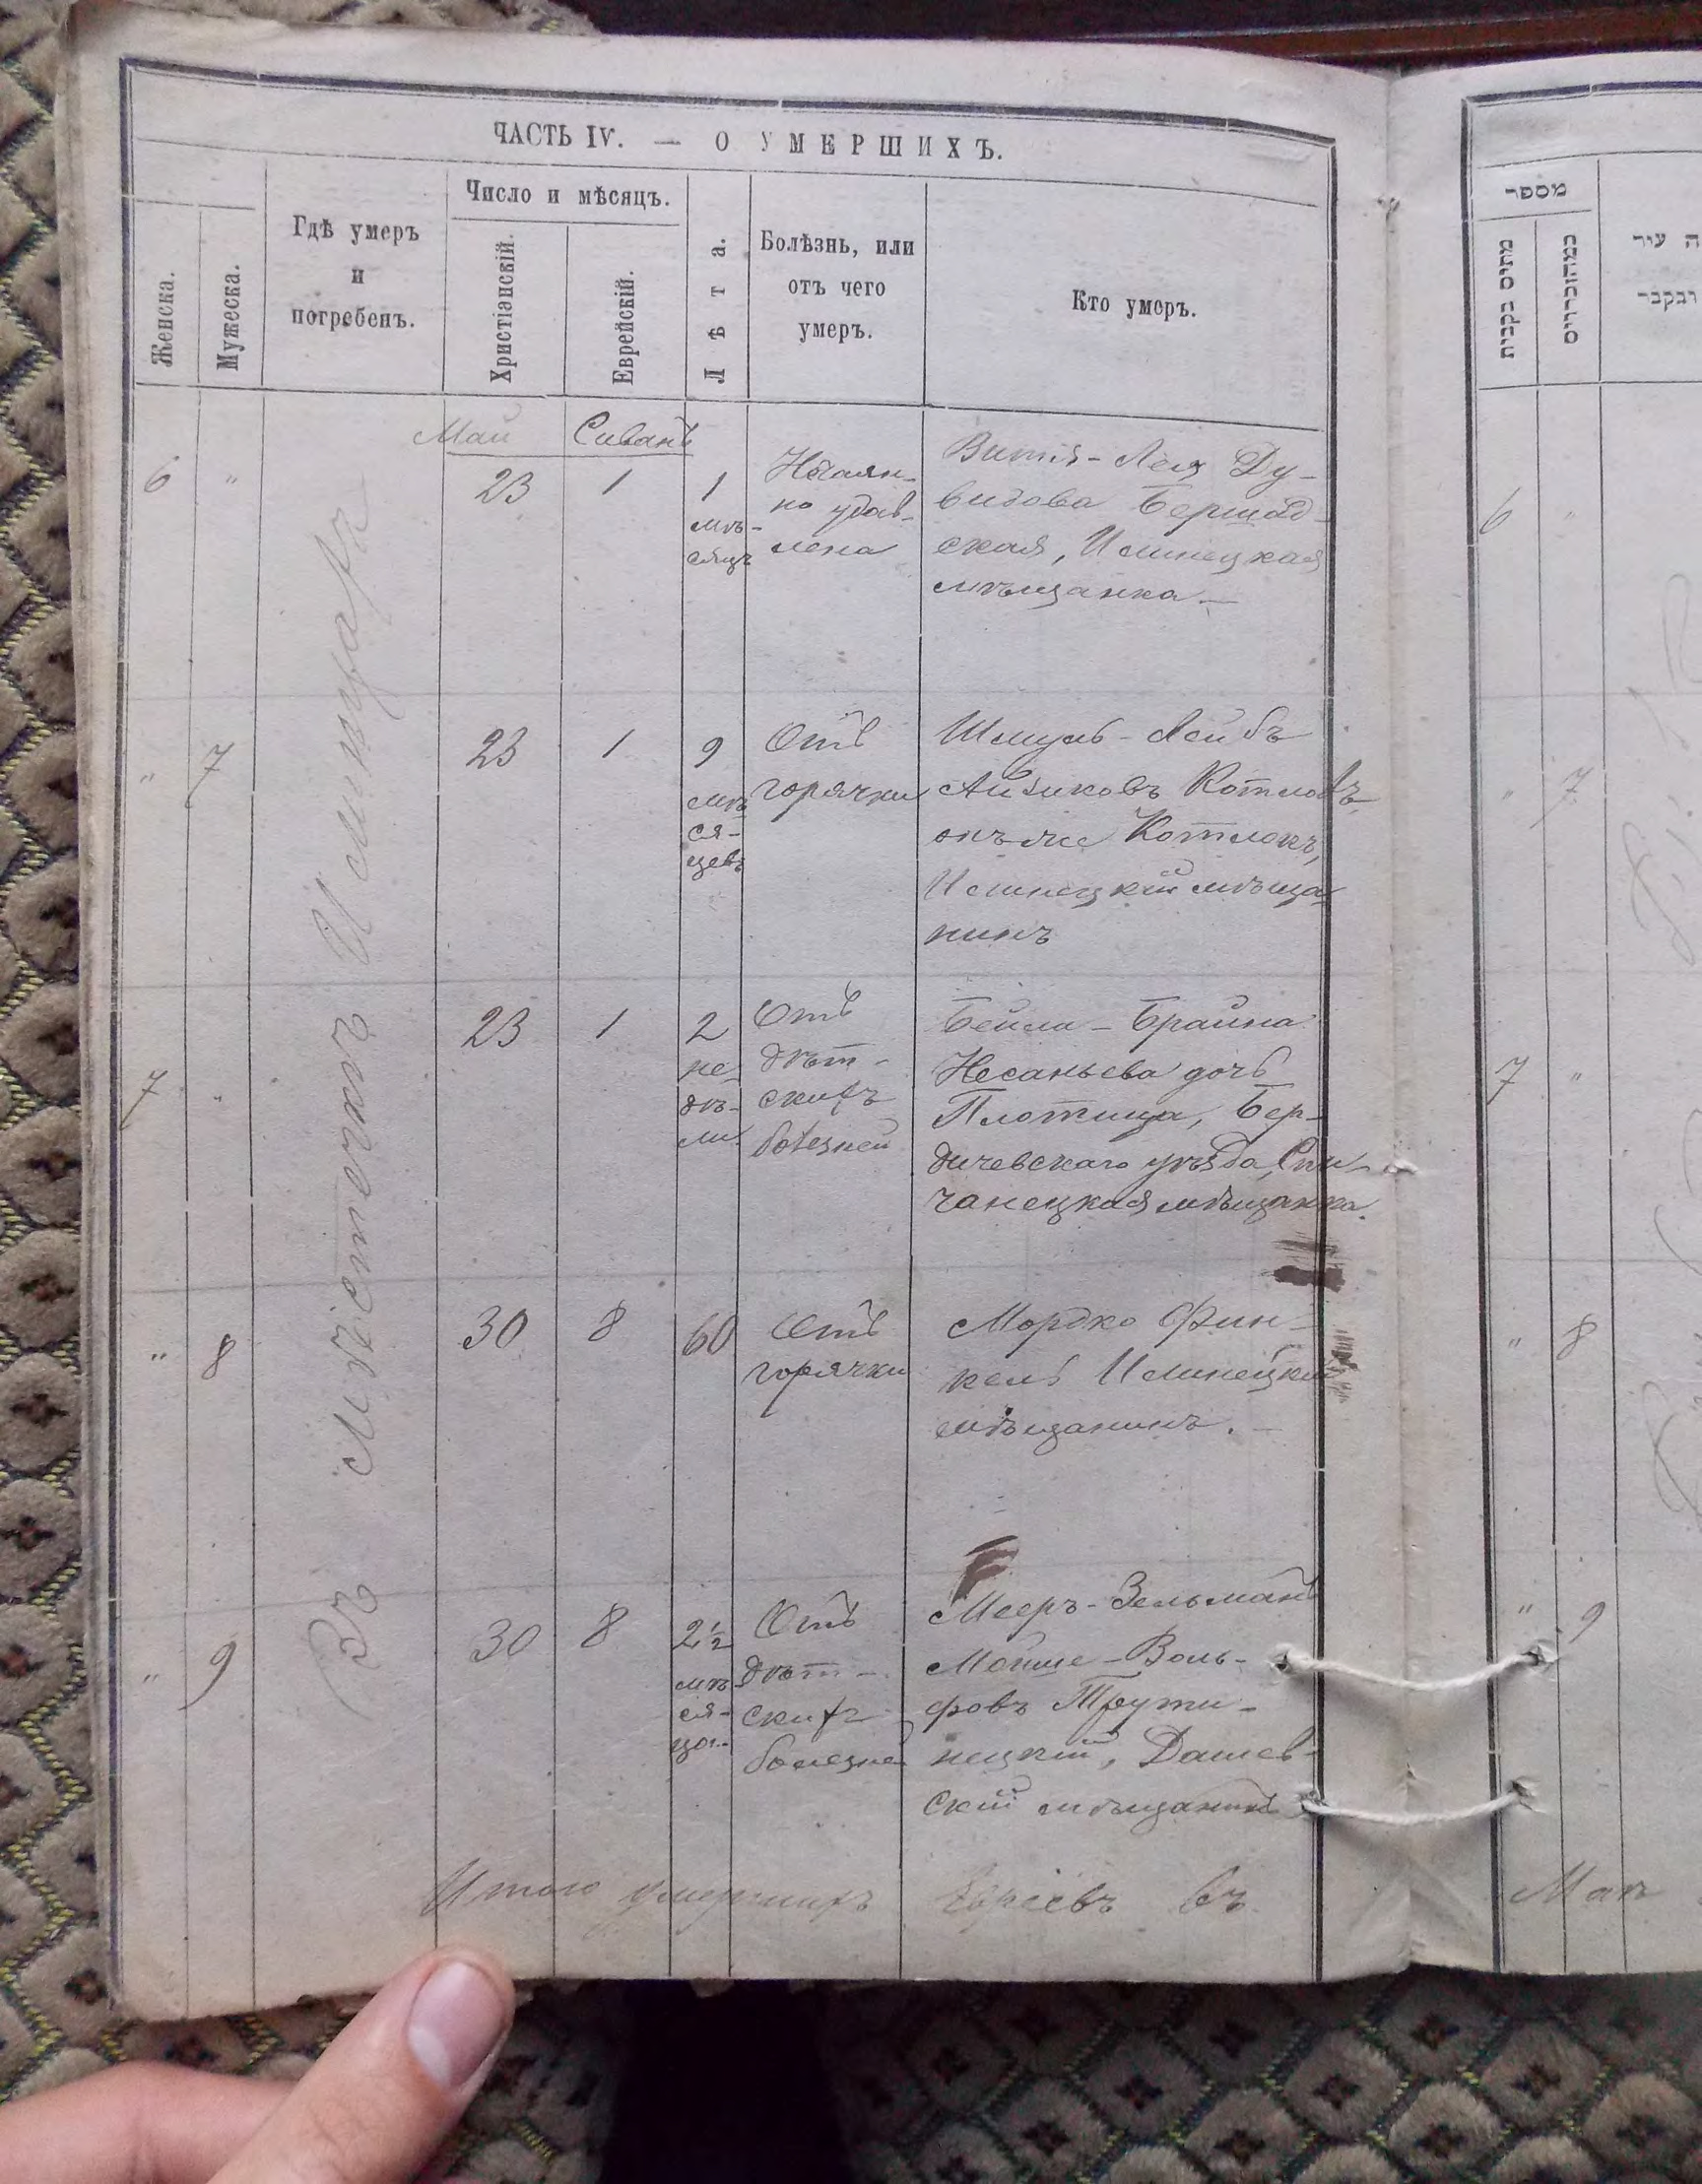 ЧАСТЬ IV. — О УМЕРШИХЪ.
Женска.
Мужеска.
Гдѣ умеръ
и
погребенъ.
Число и мѣсяцъ.
Христіанскій.
Еврейскій.
Лѣта.
Болѣзнь, или
отъ чего
умеръ.
Кто умеръ.
Въ мѣстечкѣ
Май Сиванъ
6 " 23 1
1
мѣ-
сяцъ
Нечаян-
но удав-
лена
Витя-Лея Ду-
видова Бершад-
ская, Илинецкая
мѣщанка —
" 7 23 1
9
мѣ
ся-
цевъ
Отъ
горячки
Шмуль-Лейбъ
Айзиковъ Котловъ
онъ же Котлокъ,
Илинецкій мѣща
нинъ
7 " 23 1
2
не-
дѣ-
ли
Отъ
дѣт-
скихъ
болезней
Бейла-Брайна
Несаньева дочь
Плотица, Бер-
дичевскаго уѣзда, Спи-
чанецкая мѣщанка.
" 8 30 8
60
Отъ
горячки
Мордко Фин-
кель Илинецкій
мѣщанинъ. —
" 9 30 8
2½
мѣ
ся-
ца
Отъ
дѣт-
скихъ
болезней
Мееръ-Зельманъ
Мойше-Воль-
фовъ Трути-
нецкій, Дашев-
скій мѣщанинъ
Итого умершихъ Евреевъ въ
מספר
מתים נקבות
במהזכרים
ה עיר
ובקבר
6 "
" 7
7 "
" 8
" 9
Маѣ